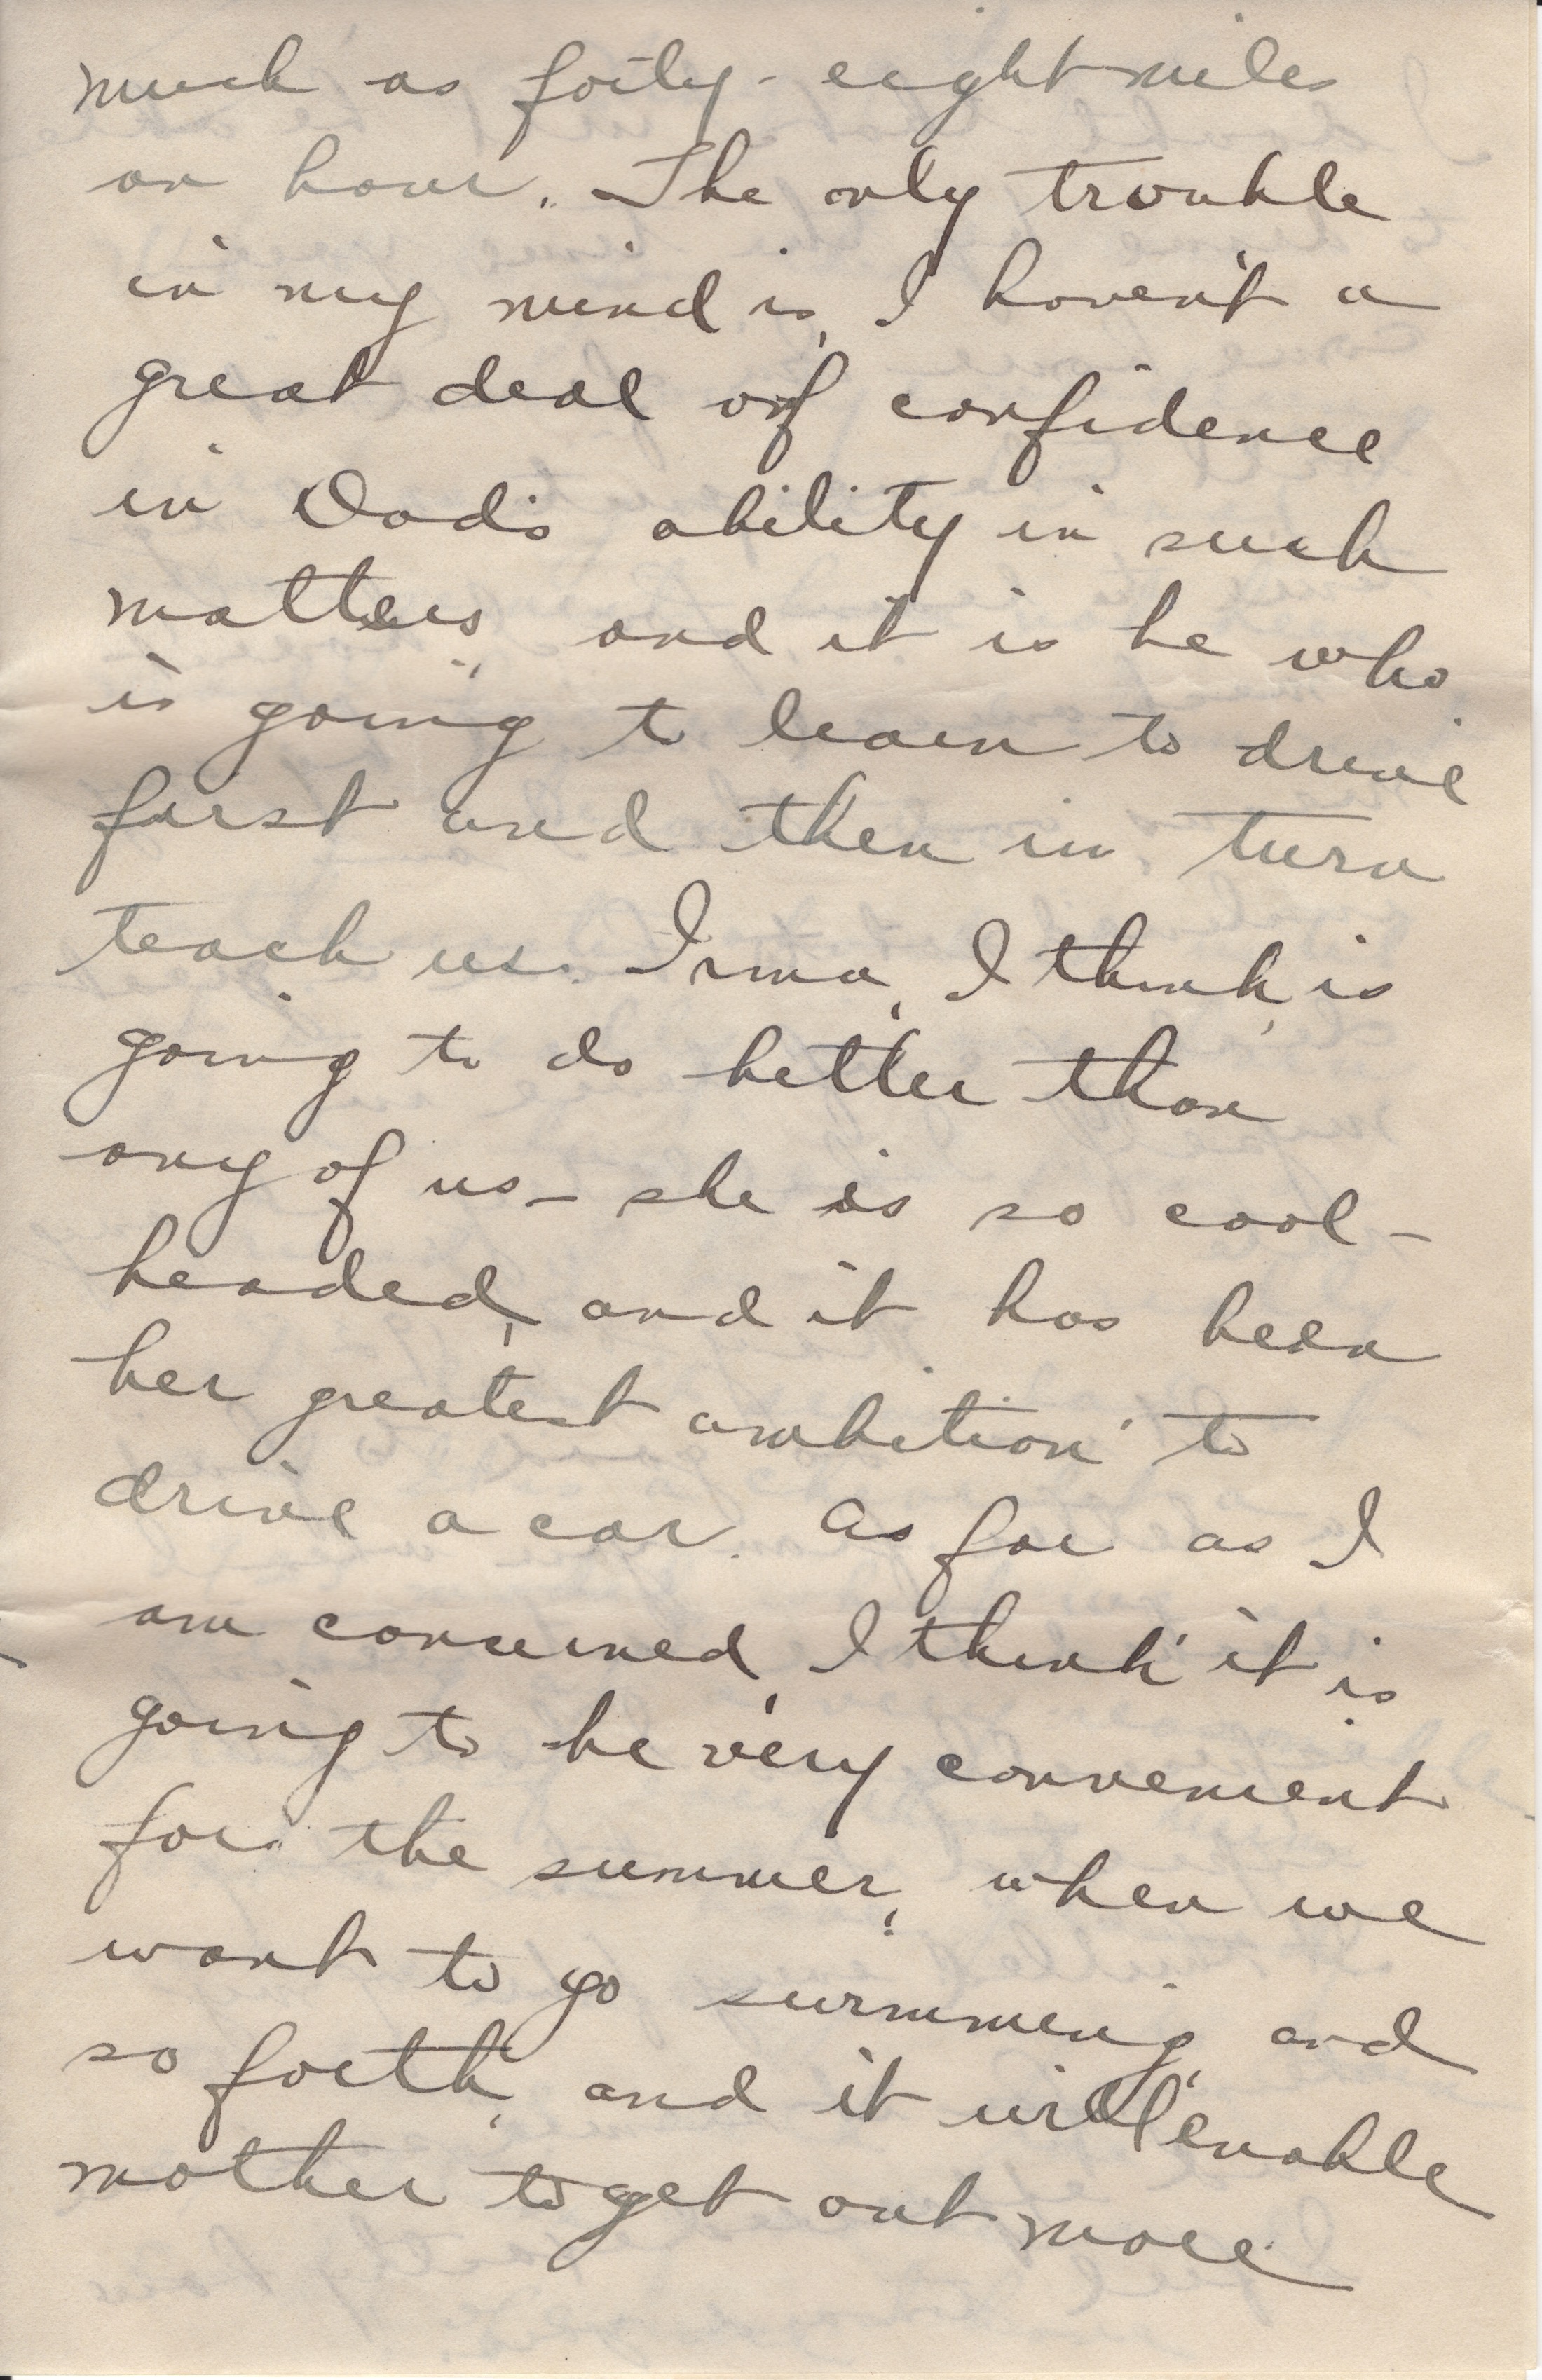 much as forty-eight miles
an hour. The only trouble
in my mind is, I haven't a
great deal of confidence
in Dad's ability in such
matters, and it is he who
is going to learn to drive
first and then in turn
teach us. Irma, I think, is
going to do better than
any of us - she is so cool-
headed, and it has been
her greatest ambition to
drive a car. As far as I
am concerned, I think it is
going to be very convenient
for the summer, when we
want to go swimming, and
so forth, and it will enable
mother to get out more